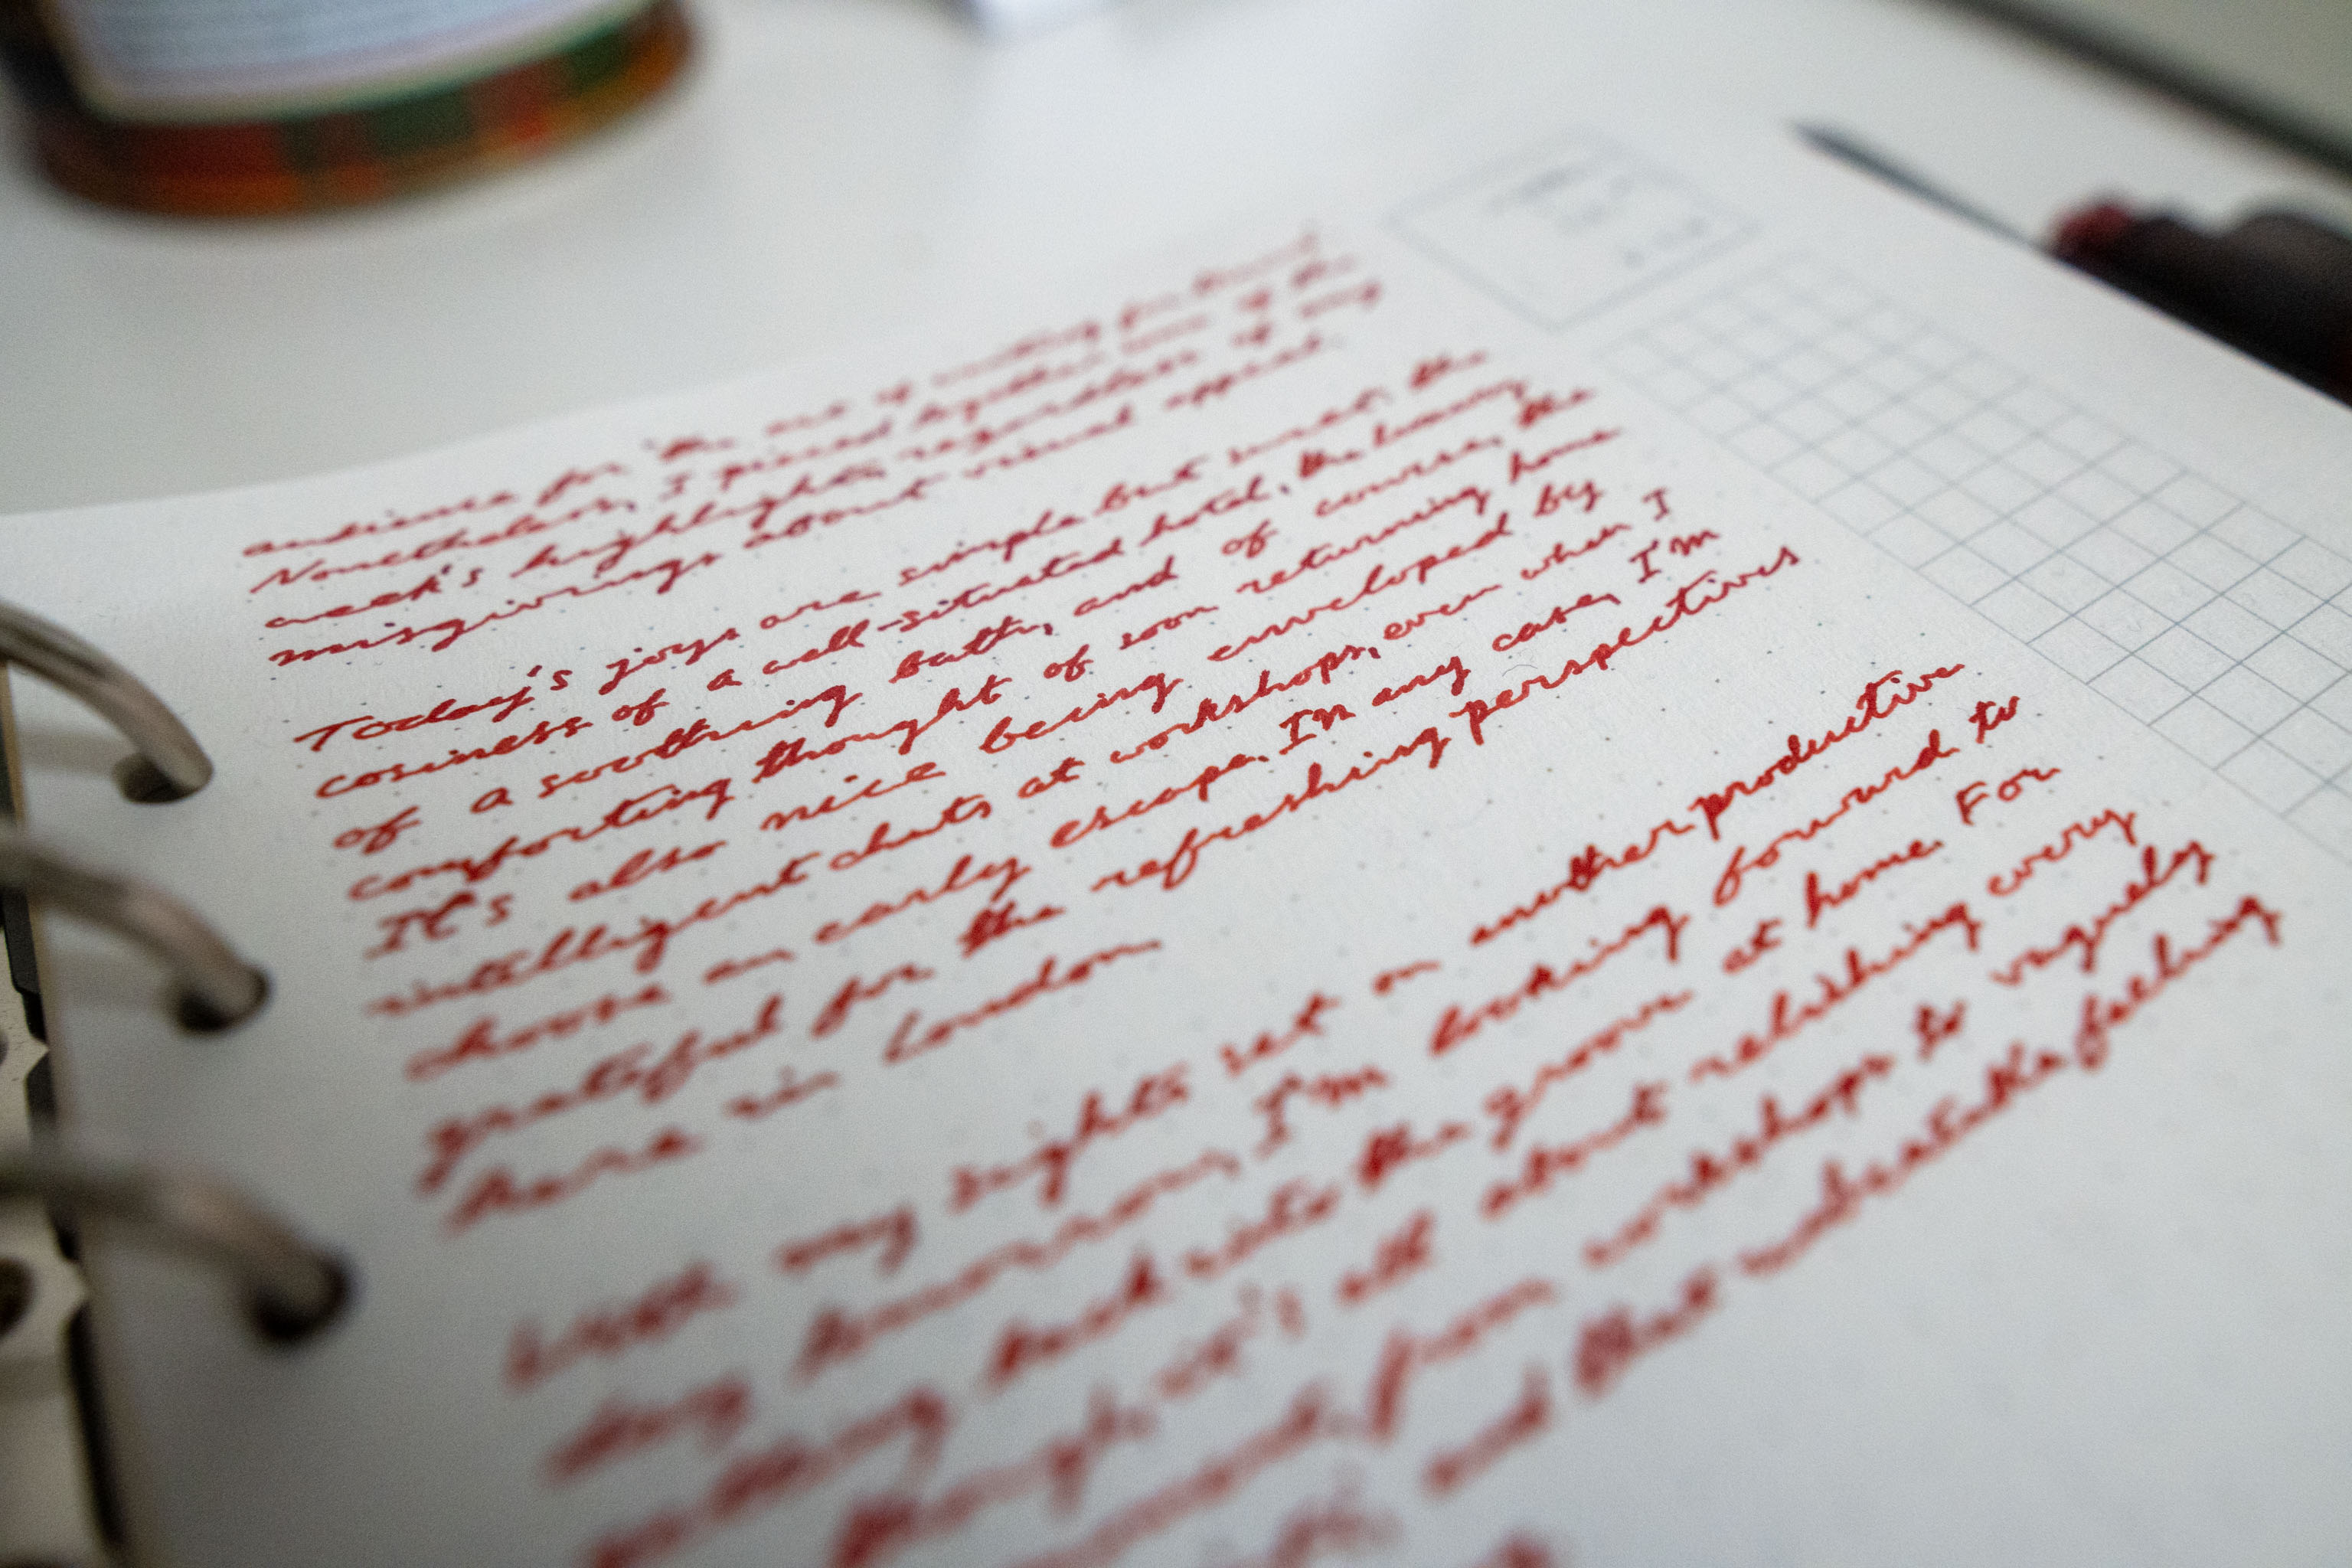 audience for the art of writing for
Nonetheless, I pieced together some of the
week's highlights regardless of my
misgivings about visual appeal.
Today's joys are simple but sweet: the
cosiness of a well-situated hotel, the luxury
of a soothing bath, and of course, the
comforting thought of soon returning home
It's also nice being enveloped by
intelligent chats at workshops, even when I
choose an early escape. In any case, I'm
grateful for the refreshing perspectives
here in London
With my sights set on another productive
day tomorrow, I'm looking forward to
getting back into the groove at home. For
though, it's all about relishing every
moment, from workshops to vaguely
and that feeling